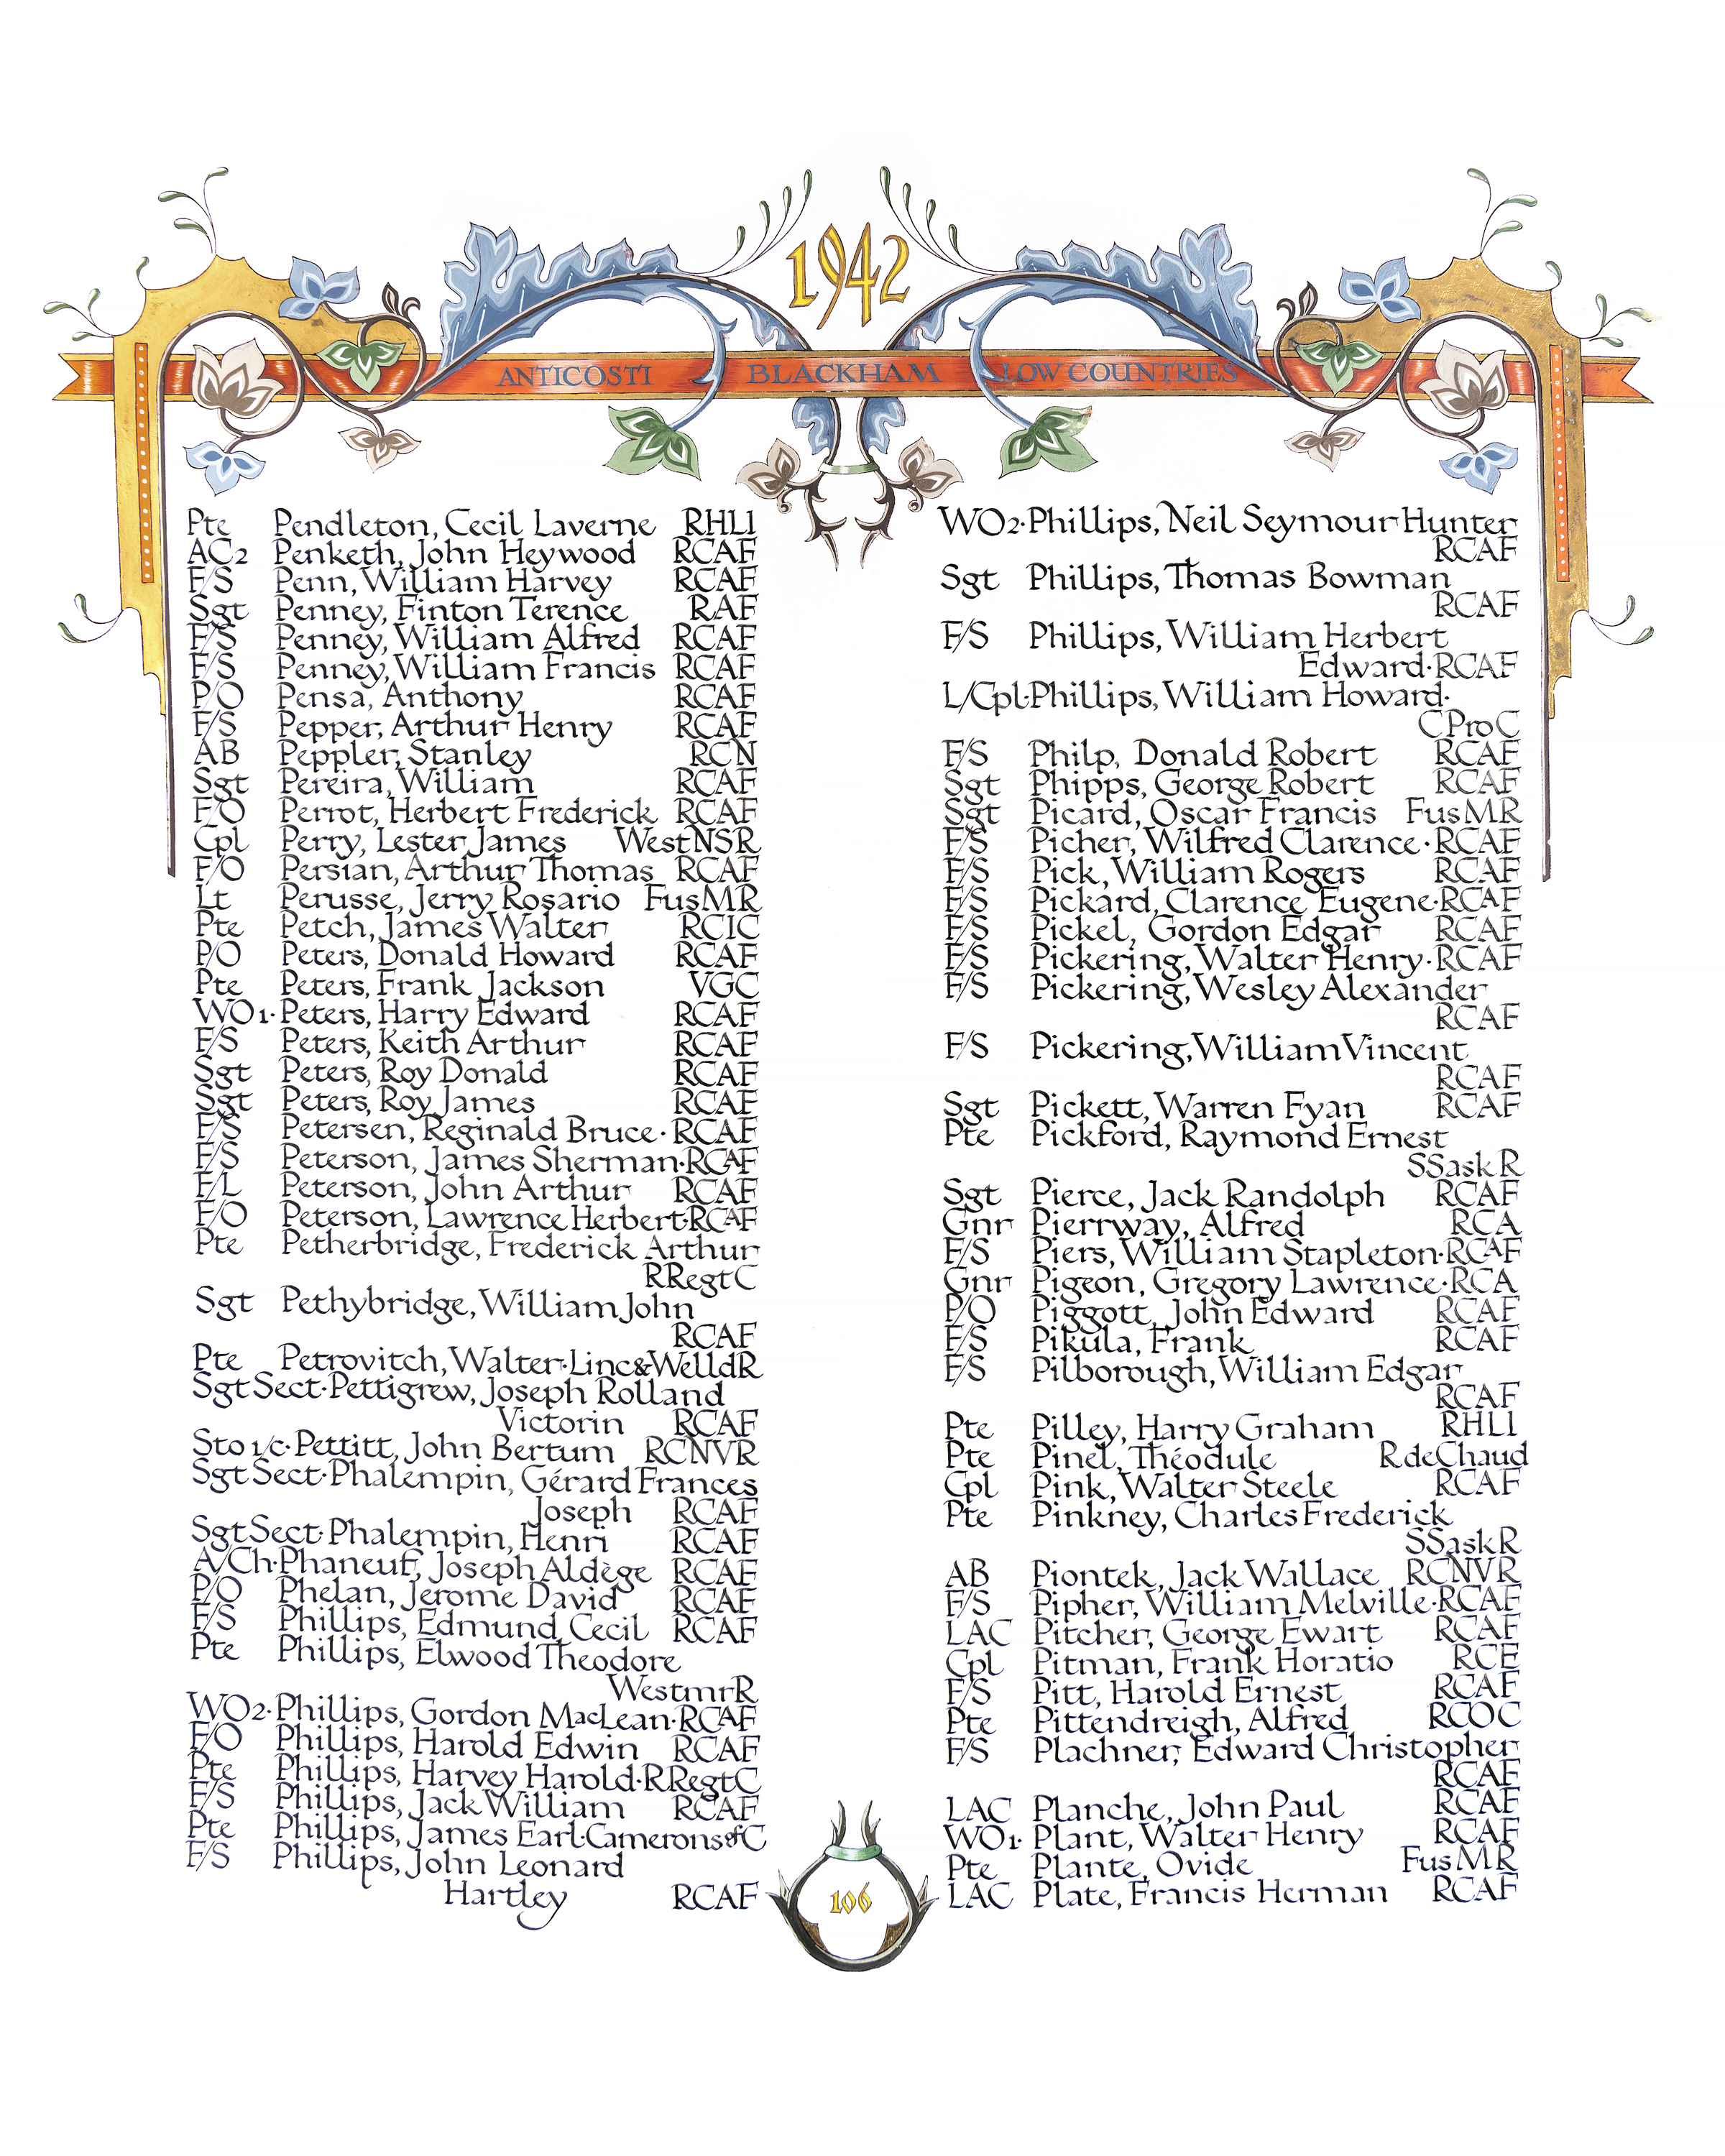 1942
ANTICOSTI BLACKHAM LOW COUNTRIES
Pte Pendleton, Cecil Laverne RHLI
AC2 Penketh, John Heywood RCAF
F/S Penn, William Harvey RCAF
Sgt Penney, Finton Terence RAF
F/S Penney, William Alfred RCAF
F/S Penney, William Francis RCAF
P/O Pensa, Anthony RCAF
F/S Pepper, Arthur Henry RCAF
AB Peppler, Stanley RCN
Sgt Pereira, William RCAF
F/O Perrot, Herbert Frederick RCAF
Cpl Perry, Lester James WestNSR
F/O Persian, Arthur Thomas RCAF
Lt Perusse, Jerry Rosario FusMR
Pte Petch, James Walter RCIC
P/O Peters, Donald Howard RCAF
Pte Peters, Frank Jackson VGC
WO1·Peters, Harry Edward RCAF
F/S Peters, Keith Arthur RCAF
Sgt Peters, Roy Donald RCAF
Sgt Peters, Roy James RCAF
F/S Petersen, Reginald Bruce·RCAF
F/S Peterson, James Sherman·RCAF
F/L Peterson, John Arthur RCAF
F/O Peterson, Lawrence Herbert·RCAF
Pte Petherbridge, Frederick Arthur
RRegtC
Sgt Pethybridge, William John
RCAF
Pte Petrovitch, Walter·Linc&WelldR
Sgt Sect·Pettigrew, Joseph Rolland
Victorin RCAF
Sto 1/c·Pettitt, John Bertum RCNVR
Sgt Sect·Phalempin, Gérard Frances
Joseph RCAF
Sgt Sect·Phalempin, Henri RCAF
A/Ch·Phaneuf, Joseph Aldège RCAF
P/O Phelan, Jerome David RCAF
F/S Phillips, Edmund Cecil RCAF
Pte Phillips, Elwood Theodore
WestmrR
WO2·Phillips, Gordon MacLean·RCAF
F/O Phillips, Harold Edwin RCAF
Pte Phillips, Harvey Harold·RRegtC
F/S Phillips, Jack William RCAF
Pte Phillips, James Earl·Camerons of C
F/S Phillips, John Leonard
Hartley RCAF
WO2·Phillips, Neil Seymour Hunter
RCAF
Sgt Phillips, Thomas Bowman
RCAF
F/S Phillips, William Herbert
Edward·RCAF
L/Cpl·Phillips, William Howard·
CProC
F/S Philp, Donald Robert RCAF
Sgt Phipps, George Robert RCAF
Sgt Picard, Oscar Francis FusMR
F/S Picher, Wilfred Clarence·RCAF
F/S Pick, William Rogers RCAF
F/S Pickard, Clarence Eugene·RCAF
F/S Pickel, Gordon Edgar RCAF
F/S Pickering, Walter Henry·RCAF
F/S Pickering, Wesley Alexander
RCAF
F/S Pickering, William Vincent
RCAF
Sgt Pickett, Warren Fyan RCAF
Pte Pickford, Raymond Ernest
SSaskR
Sgt Pierce, Jack Randolph RCAF
Gnr Pierrway, Alfred RCA
F/S Piers, William Stapleton·RCAF
Gnr Pigeon, Gregory Lawrence·RCA
P/O Piggott, John Edward RCAF
F/S Pikula, Frank RCAF
F/S Pilborough, William Edgar
RCAF
Pte Pilley, Harry Graham RHLI
Pte Pinel, Théodule RdeChaud
Cpl Pink, Walter Steele RCAF
Pte Pinkney, Charles Frederick
SSaskR
AB Piontek, Jack Wallace RCNVR
F/S Pipher, William Melville·RCAF
LAC Pitcher, George Ewart RCAF
Cpl Pitman, Frank Horatio RCE
F/S Pitt, Harold Ernest RCAF
Pte Pittendreigh, Alfred RCOC
F/S Plachner, Edward Christopher
RCAF
LAC Planche, John Paul RCAF
WO1·Plant, Walter Henry RCAF
Pte Plante, Ovide FusMR
LAC Plate, Francis Herman RCAF
106